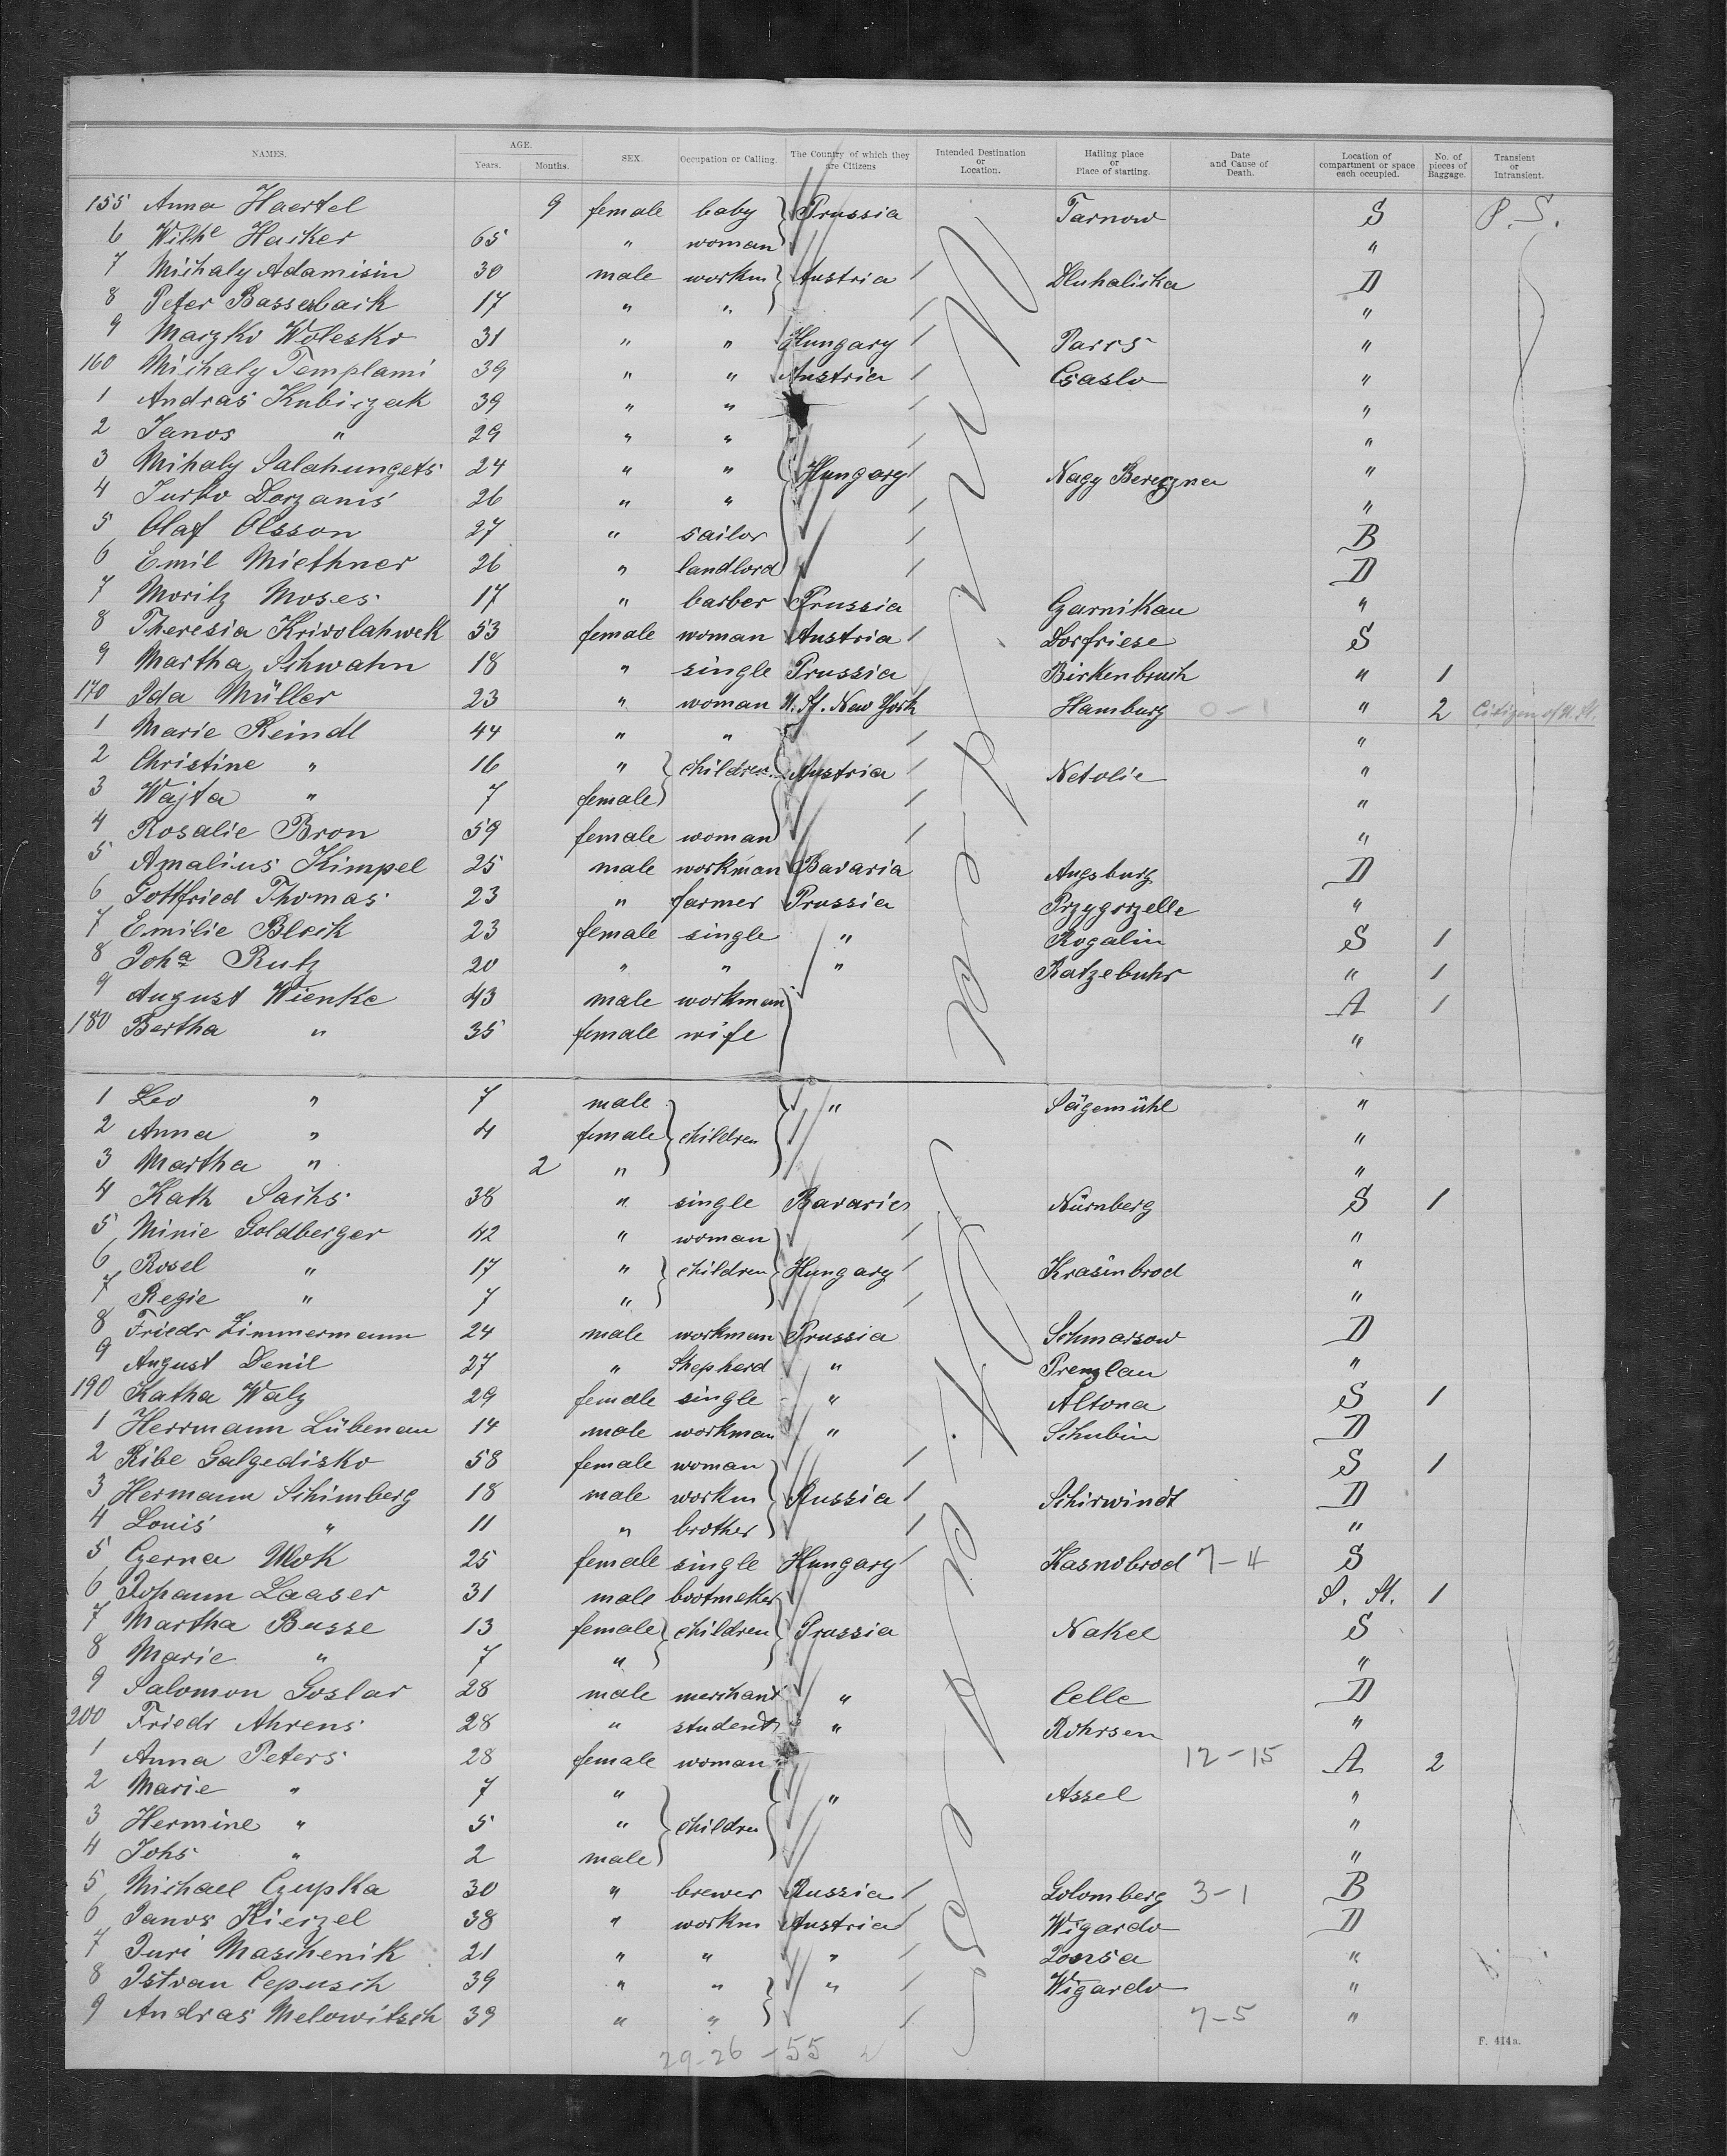 NAMES. AGE. Years. Months. SEX. Occupation or Calling. The Country of which they are Citizens Intended Destination or Location. Hailing place or Place of starting. Date and Cause of Death. Location of compartment or space each occupied. No. of pieces of Baggage. Transient or Intransient.
155 Anna Haertel 9 female baby Prussia Tarnow S P. S.
6 Wilhe Hacker 65 " woman "
7 Michaly Adamisin 30 male workm Austria Dluhaliska D
8 Peter Basserback 17 " " "
9 Maryko Wolesko 31 " " Hungary Parrs "
160 Michaly Templami 39 " " Austria Csaslo "
1 Andras Kubiczak 39 " " "
2 Janos " 29 " " "
3 Mihaly Salahungets 24 " " Hungary Nagy Berezna "
4 Jurko Dorzanis 26 " " "
5 Olaf Olsson 27 " sailor B
6 Emil Miethner 26 " landlord D
7 Moritz Moses 17 " barber Prussia Czarnikau "
8 Theresia Krivolahwek 53 female woman Austria Dorfriese S
9 Martha Schwahn 18 " single Prussia Birkenbruch " 1
170 Ida Müller 23 " woman U. St. New York Hamburg 0-1 " 2 Citizen of U. St.
1 Marie Reindl 44 " " "
2 Christine " 16 " children Austria Netolie "
3 Wajta " 7 female "
4 Rosalie Bron 59 female woman "
5 Amalius Kimpel 25 male workman Bavaria Augsburg D
6 Gottfried Thomas 23 " farmer Prussia Przygorzelle "
7 Emilie Block 23 female single " Rogalin S 1
8 Joha Rutz 20 " " " Ratzebuhr " 1
9 August Wienke 43 male workman A 1
180 Bertha " 35 female wife "
1 Leo " 7 male " Sägemühl "
2 Anna " 4 female children "
3 Martha " 2 " "
4 Kath Sachs 38 " single Bavaria Nürnberg S 1
5 Minie Goldberger 42 " woman "
6 Rosel " 17 " children Hungary Krasinbrod "
7 Regie " 7 " "
8 Friedr Zimmermann 24 male workman Prussia Schmarsow D
9 August Denil 27 " Shepherd " Prenzlau "
190 Katha Walz 29 female single " Altona S 1
1 Herrmann Lübenau 14 male workman " Schubin D
2 Ribe Galgedisko 58 female woman S 1
3 Hermann Schimberg 18 male workm Russia Schirwindt D
4 Louis " 11 " brother "
5 Czerna Ulok 25 female single Hungary Kasnobrod 7-4 S
6 Johann Laaser 31 male bootmaker S. St. 1
7 Martha Busse 13 female children Prussia Nakel S
8 Marie " 7 " "
9 Salomon Goslar 28 male merchant " Celle D
200 Friedr Ahrens 28 " student " Rohrsen "
1 Anna Peters 28 female woman 12-15 A 2
2 Marie " 7 " " Assel "
3 Hermine " 5 " children "
4 Johs " 2 male "
5 Michael Czupka 30 " brewer Russia Golomberg 3-1 B
6 Janos Kierzel 38 " workm Austria Wigardo D
7 Juri Maschenik 21 " " " Lovrsa "
8 Istvan Cepusch 39 " " " Wigardo "
9 Andras Melowitsch 39 " " 7-5 "
29-26-55
F. 414a.